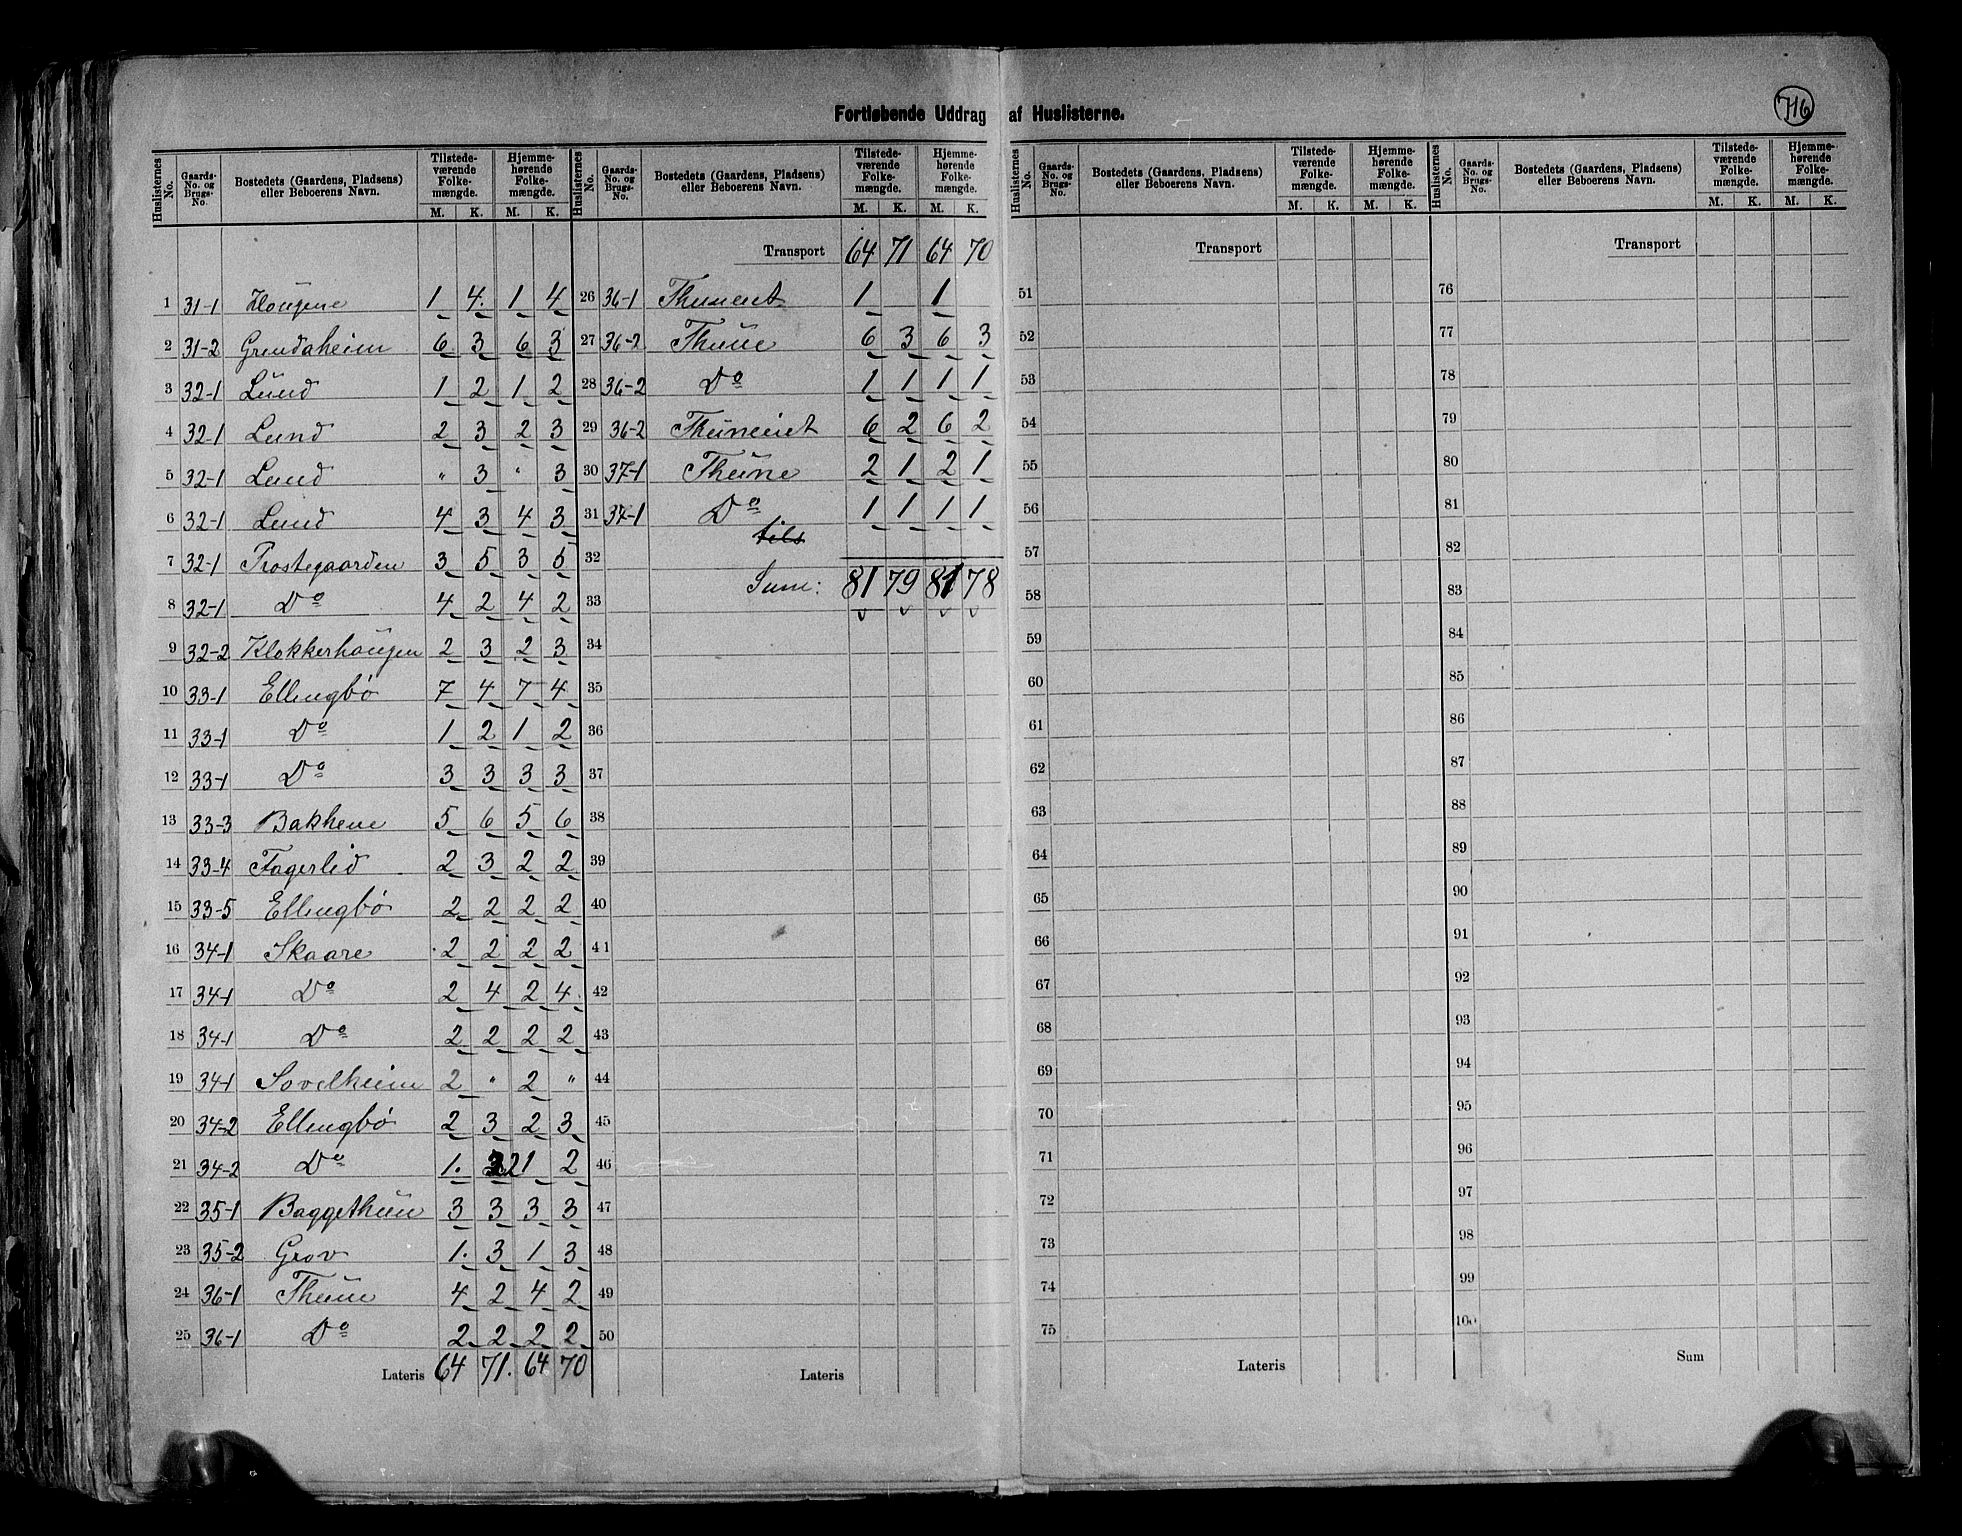 716
Fortløbende Uddrag af Huslisterne.
Huslisternes No. Gaards-No. og Brugs-No. Bostedets (Gaardens, Pladsens) eller Beboerens Navn. Tilstedeværende Folkemængde. M. K. Hjemmehørende Folkemængde. M. K.
1 31-1 Hougene 1 4 1 4
2 31-2 Grindaheim 6 3 6 3
3 32-1 Lund 1 2 1 2
4 32-1 Lund 2 3 2 3
5 32-1 Lund " 3 " 3
6 32-1 Lund 4 3 4 3
7 32-1 Prostegaarden 3 5 3 5
8 32-1 Do 4 2 4 2
9 32-2 Klokkerhougen 2 3 2 3
10 33-1 Ellingbø 7 4 7 4
11 33-1 Do 1 2 1 2
12 33-1 Do 3 3 3 3
13 33-3 Bakhene 5 6 5 6
14 33-4 Fagerlid 2 3 2 2
15 33-5 Ellingbø 2 2 2 2
16 34-1 Skaare 2 2 2 2
17 34-1 Do 2 4 2 4
18 34-1 Do 2 2 2 2
19 34-1 Sovelheim 2 " 2 "
20 34-2 Ellingbø 2 3 2 3
21 34-2 Do 1 2 1 2
22 35-1 Baggethun 3 3 3 3
23 35-2 Grov 1 3 1 3
24 36-1 Thune 4 2 4 2
25 36-1 Do 2 2 2 2
Lateris 64 71 64 70
Huslisternes No. Gaards-No. og Brugs-No. Bostedets (Gaardens, Pladsens) eller Beboerens Navn. Tilstedeværende Folkemængde. M. K. Hjemmehørende Folkemængde. M. K.
Transport 64 71 64 70
26 36-1 Thuneiet 1 1
27 36-2 Thune 6 3 6 3
28 36-2 Do 1 1 1 1
29 36-2 Thuneiet 6 2 6 2
30 37-1 Thune 2 1 2 1
31 37-1 Do 1 1 1 1
tils
32
33 Sum: 81 79 81 78
34
35
36
37
38
39
40
41
42
43
44
45
46
47
48
49
50
Lateris
Huslisternes No. Gaards-No. og Brugs-No. Bostedets (Gaardens, Pladsens) eller Beboerens Navn. Tilstedeværende Folkemængde. M. K. Hjemmehørende Folkemængde. M. K.
Transport
51
52
53
54
55
56
57
58
59
60
61
62
63
64
65
66
67
68
69
70
71
72
73
74
75
Lateris
Huslisternes No. Gaards-No. og Brugs-No. Bostedets (Gaardens, Pladsens) eller Beboerens Navn. Tilstedeværende Folkemængde. M. K. Hjemmehørende Folkemængde. M. K.
Transport
76
77
78
79
80
81
82
83
84
85
86
87
88
89
90
91
92
93
94
95
96
97
98
99
100
Sum